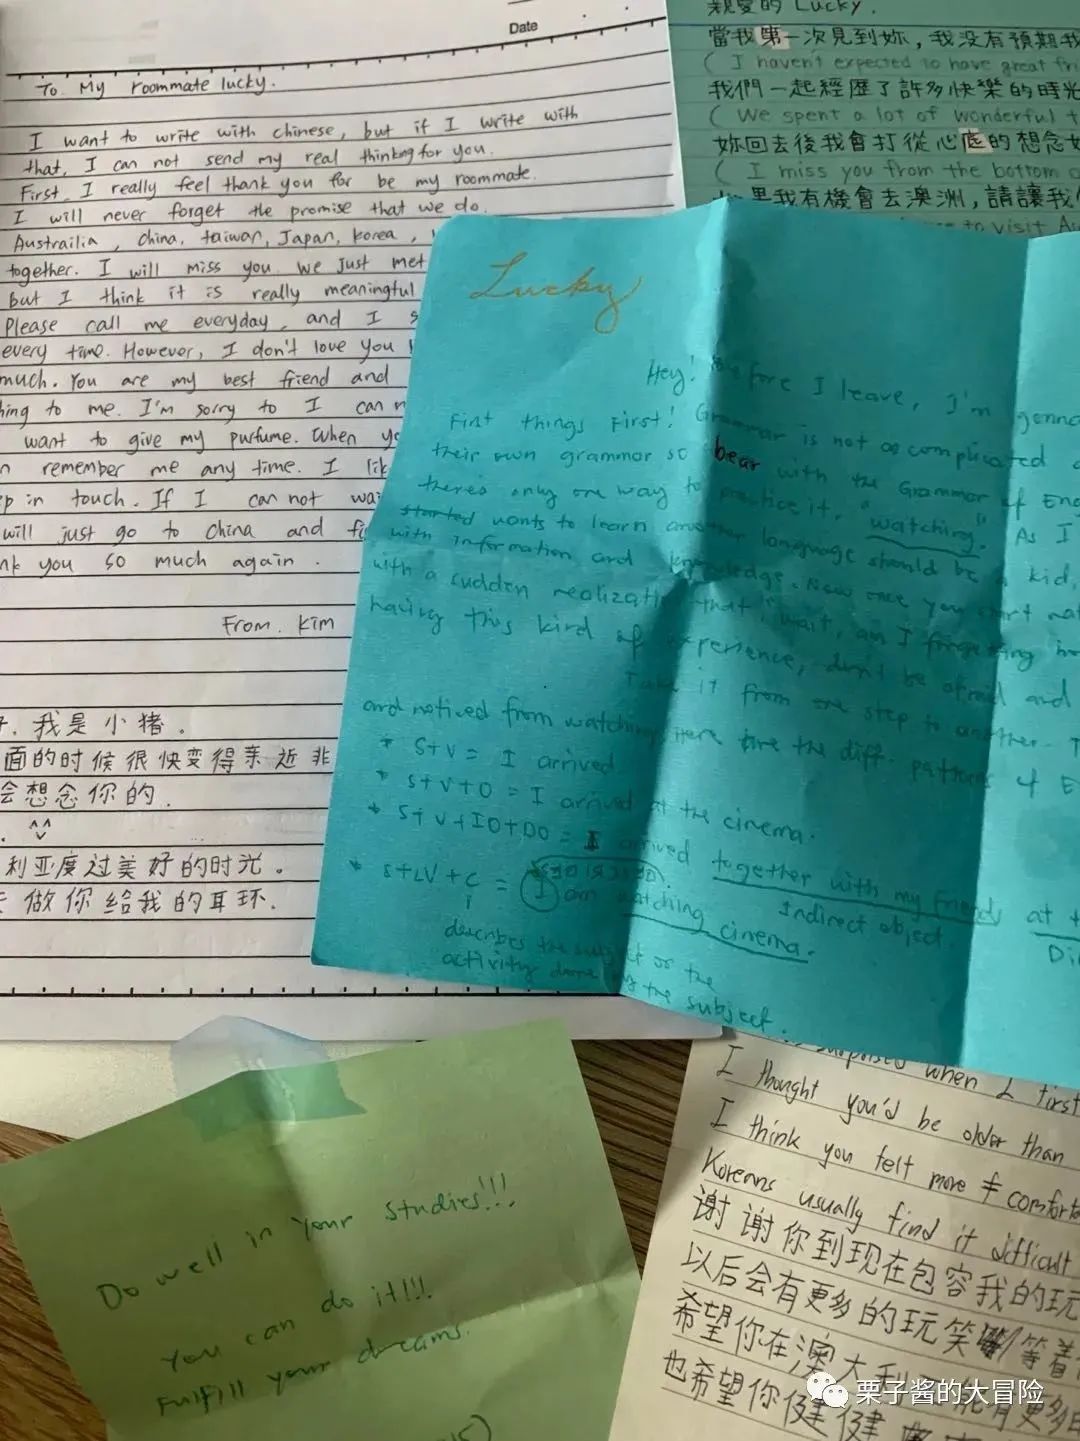 Date
To. My roommate lucky.
I want to write with chinese, but if I write with
that, I can not send my real thinking for you.
First, I really feel thank you for be my roommate.
I will never forget the promise that we do.
Austrailia, china, taiwan, Japan, korea,
together. I will miss you. We just met
but I think it is really meaningful
Please call me everyday, and I
every time. However, I don't love you
much. You are my best friend and
hing to me. I'm sorry to I can
want to give my purfume. When yo
remember me any time. I lik
p in touch. If I can not wai
will just go to China and fi
nk you so much again.
From. Kim
我是小猪.
面的时候很快变得亲近非
会想念你的.
^^
利亚度过美好的时光。
做你给我的耳环.
親愛的 Lucky.
當我第一次見到妳,我沒有預期我
( I haven't expected to have great fri
我們一起經歷了許多快樂的時光
( We spent a lot of wonderful t
妳回去後我會打從心底的想念
( I miss you from the bottom o
果我有機會去澳洲,請讓我
to visit Au
Lucky
Hey! Before I leave, I'm gonna
First things First! Grammar is not as complicated
their own grammar so bear with the Grammar of Eng
there's only one way to practice it, "watching". As I
started wants to learn another language should be a kid,
with information and knowledge. Now once you start
with a sudden realization that "wait, am I forgetting
having this kind of experience, don't be afraid and
Take it from one step to another.
and noticed from watching. Here are the diff. patterns of E
* S+V = I arrived.
* S+V+O = I arrived at the cinema.
* S+V+IO+DO = I arrived together with my friends at
Indirect object.
Di
* S+LV+C = I am watching cinema.
describes the subject or the
activity done by the subject.
Do well in your studies!!!
You can do it!!!
Fulfill your dreams.
when I first
I thought you'd be older than
I think you felt more comforta
Koreans usually find it difficult
谢谢你到现在包容我的玩
以后会有更多的玩笑 等着
希望你在澳大利 有更多
也希望你健健
栗子酱的大冒险